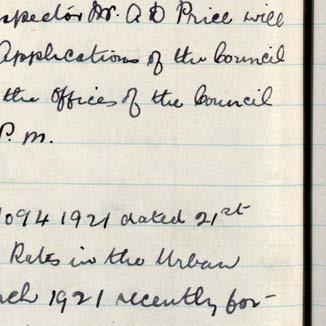 spector Mr. A D Price will
Applications of the Council
the offices of the Council
P. m.
1094 1921 dated 21st
Rates in the Urban
ch 1921 recently for-